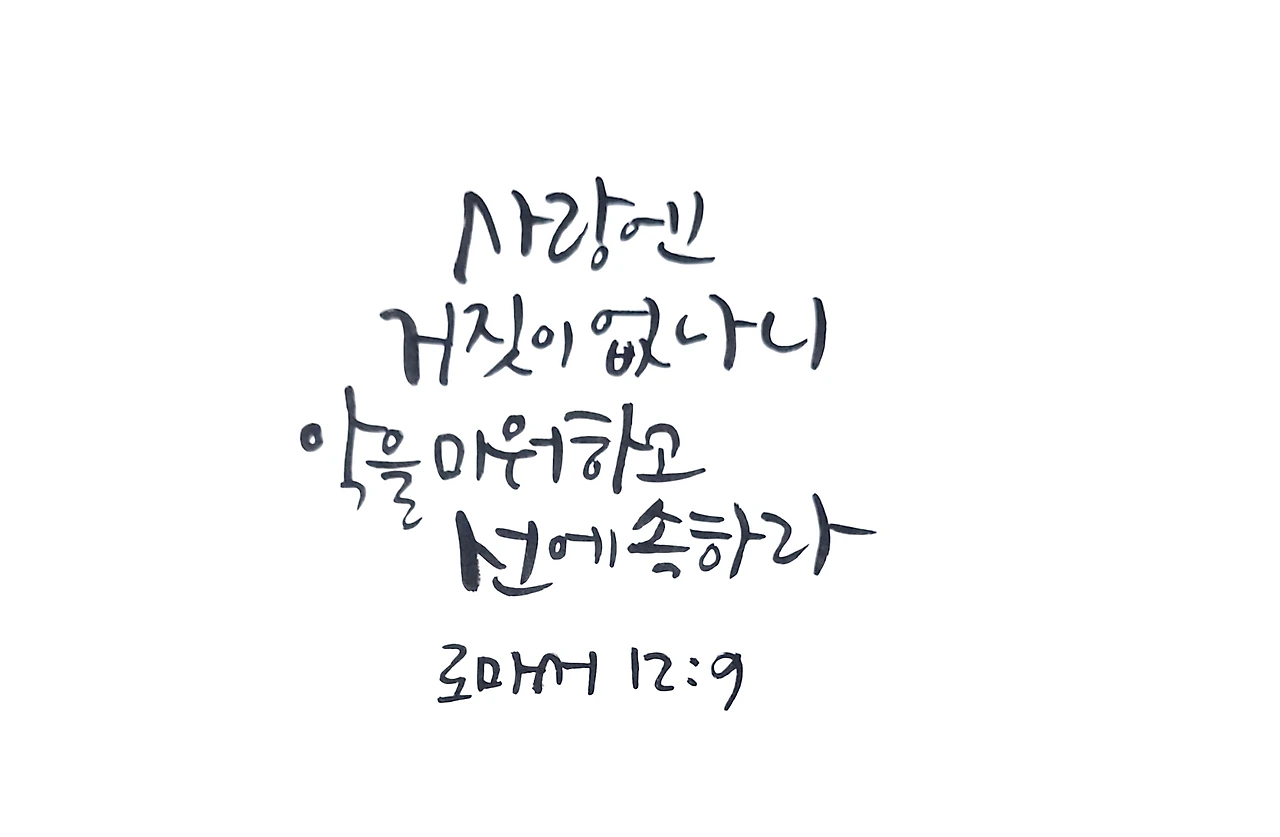 사랑엔
거짓이 없나니
악을 미워하고
선에 속하라
로마서 12:9